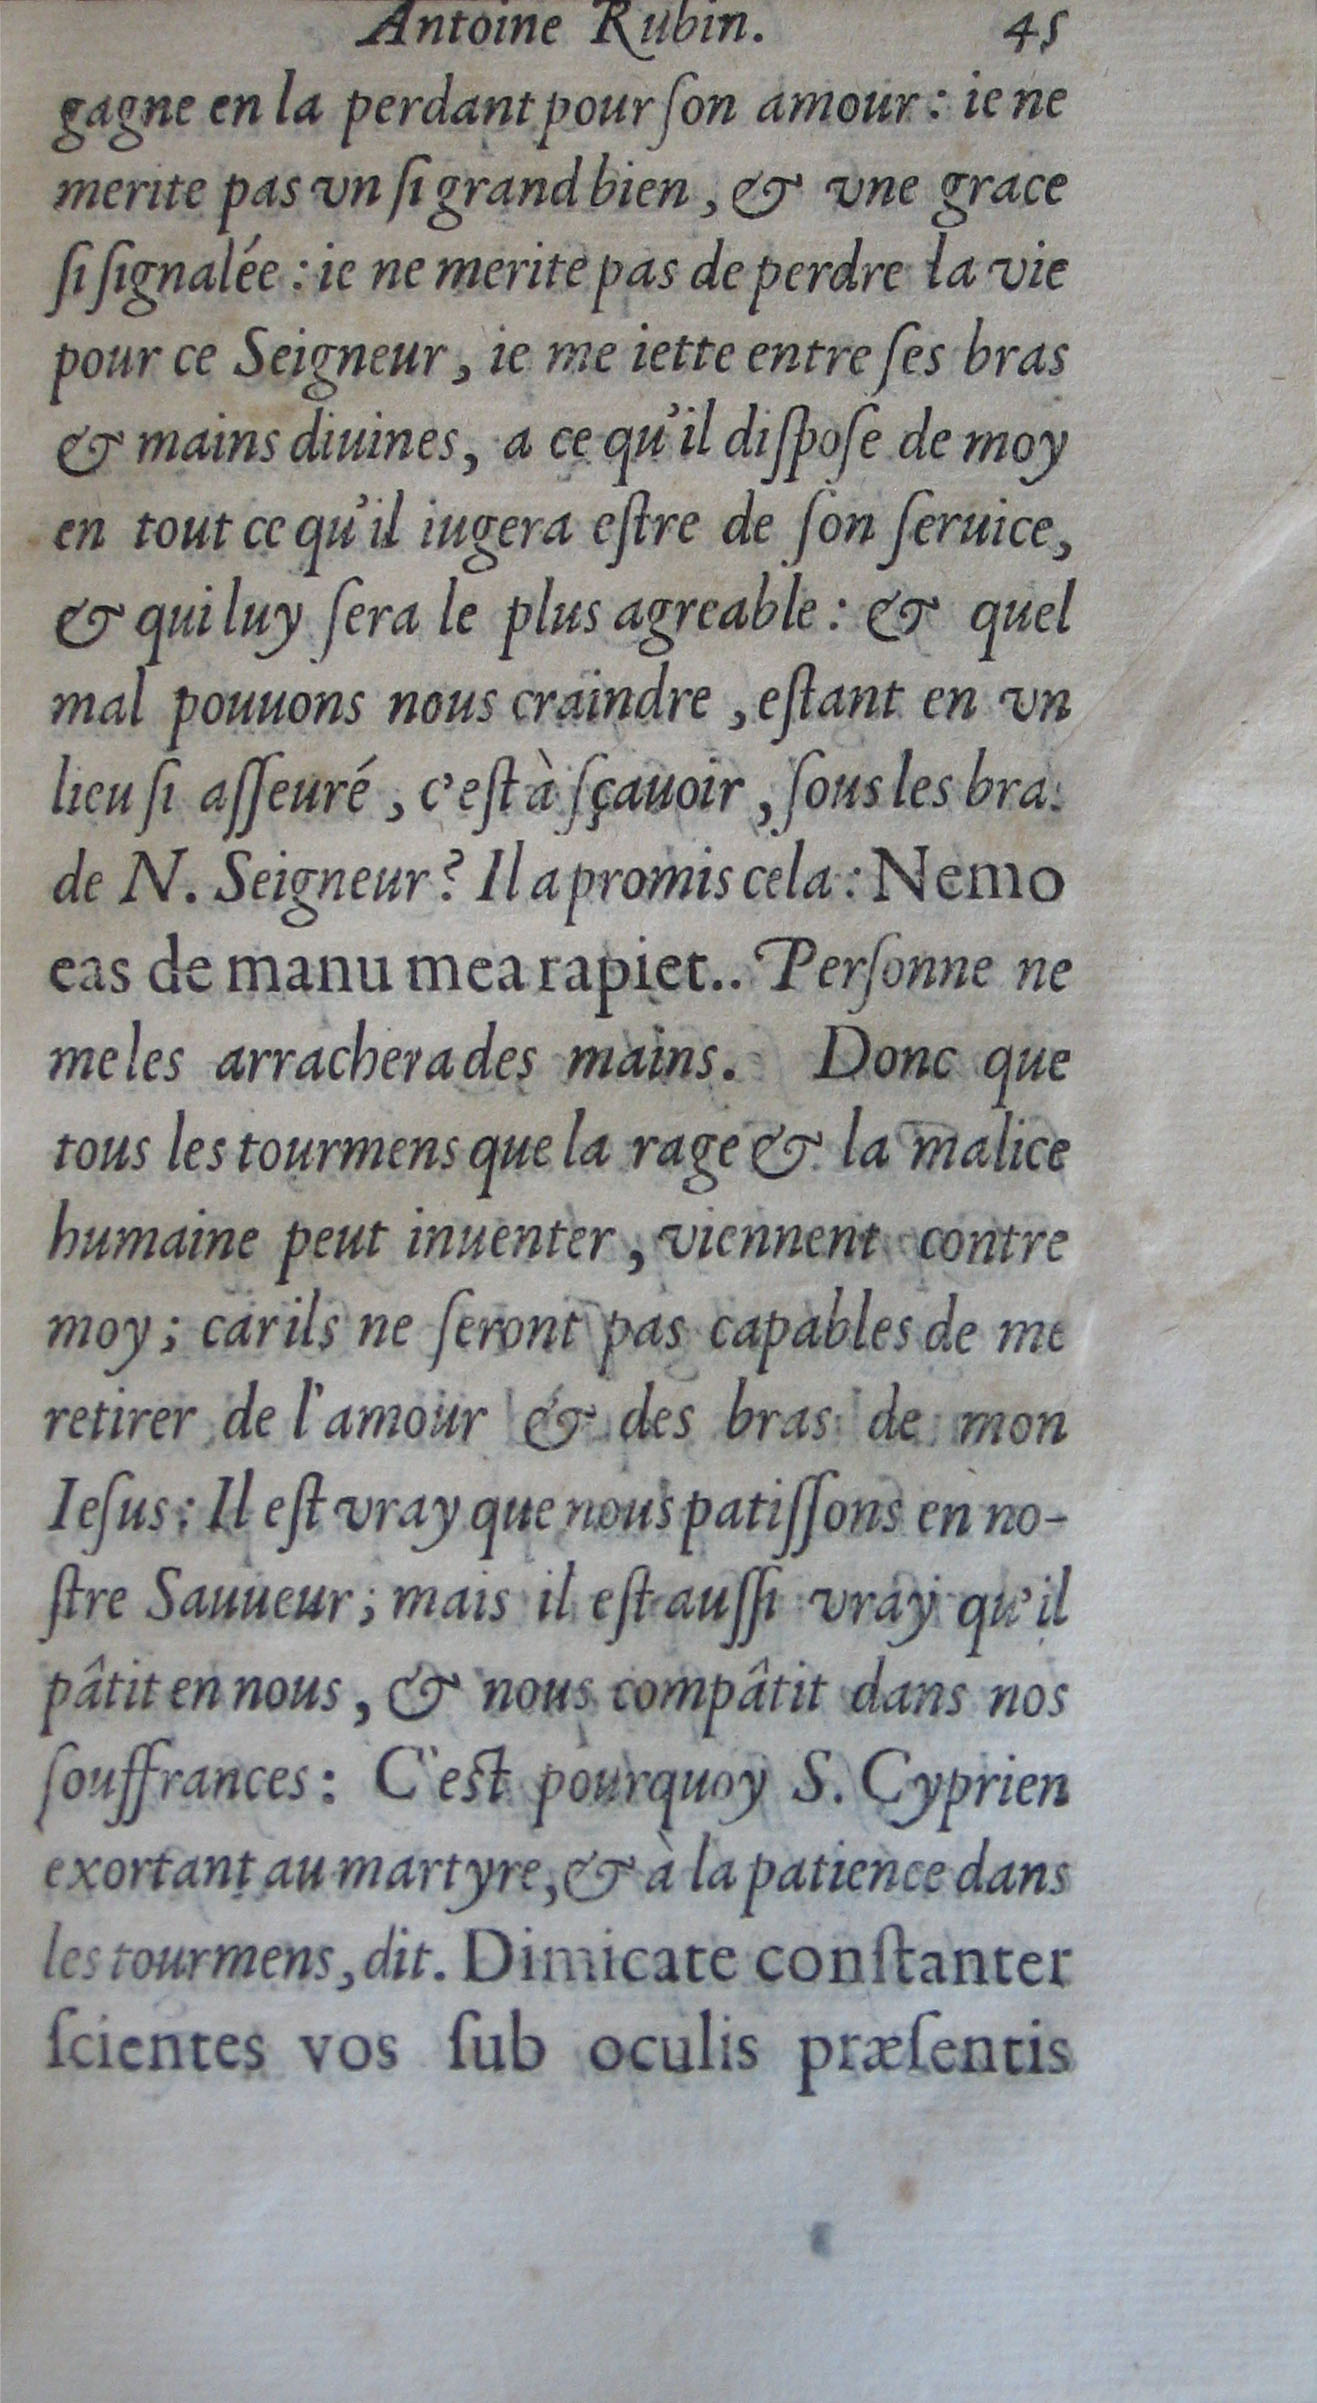 Antoine Rubin. 45
gagne en la perdant pour ſon amour : ie ne
merite pas vn ſi grand bien, & vne grace
ſi ſignalée : ie ne merite pas de perdre la vie
pour ce Seigneur, ie me iette entre ſes bras
& mains diuines, a ce qu'il diſpoſe de moy
en tout ce qu'il iugera eſtre de ſon ſeruice,
& qui luy ſera le plus agreable : & quel
mal pouuons nous craindre, eſtant en vn
lieu ſi aſſeuré, c'eſt à ſçauoir, ſous les bra
de N. Seigneur? Il a promis cela : Nemo
eas de manu mea rapiet.. Perſonne ne
me les arrachera des mains. Donc que
tous les tourmens que la rage & la malice
humaine peut inuenter, viennent contre
moy ; car ils ne ſeront pas capables de me
retirer de l'amour & des bras de mon
Ieſus : Il eſt vray que nous patiſſons en no-
ſtre Sauueur ; mais il eſt auſſi vray qu'il
pâtit en nous, & nous compâtit dans nos
ſouffrances : C'eſt pourquoy S. Cyprien
exortant au martyre, & à la patience dans
les tourmens, dit. Dimicate conſtanter
ſcientes vos ſub oculis præſentis